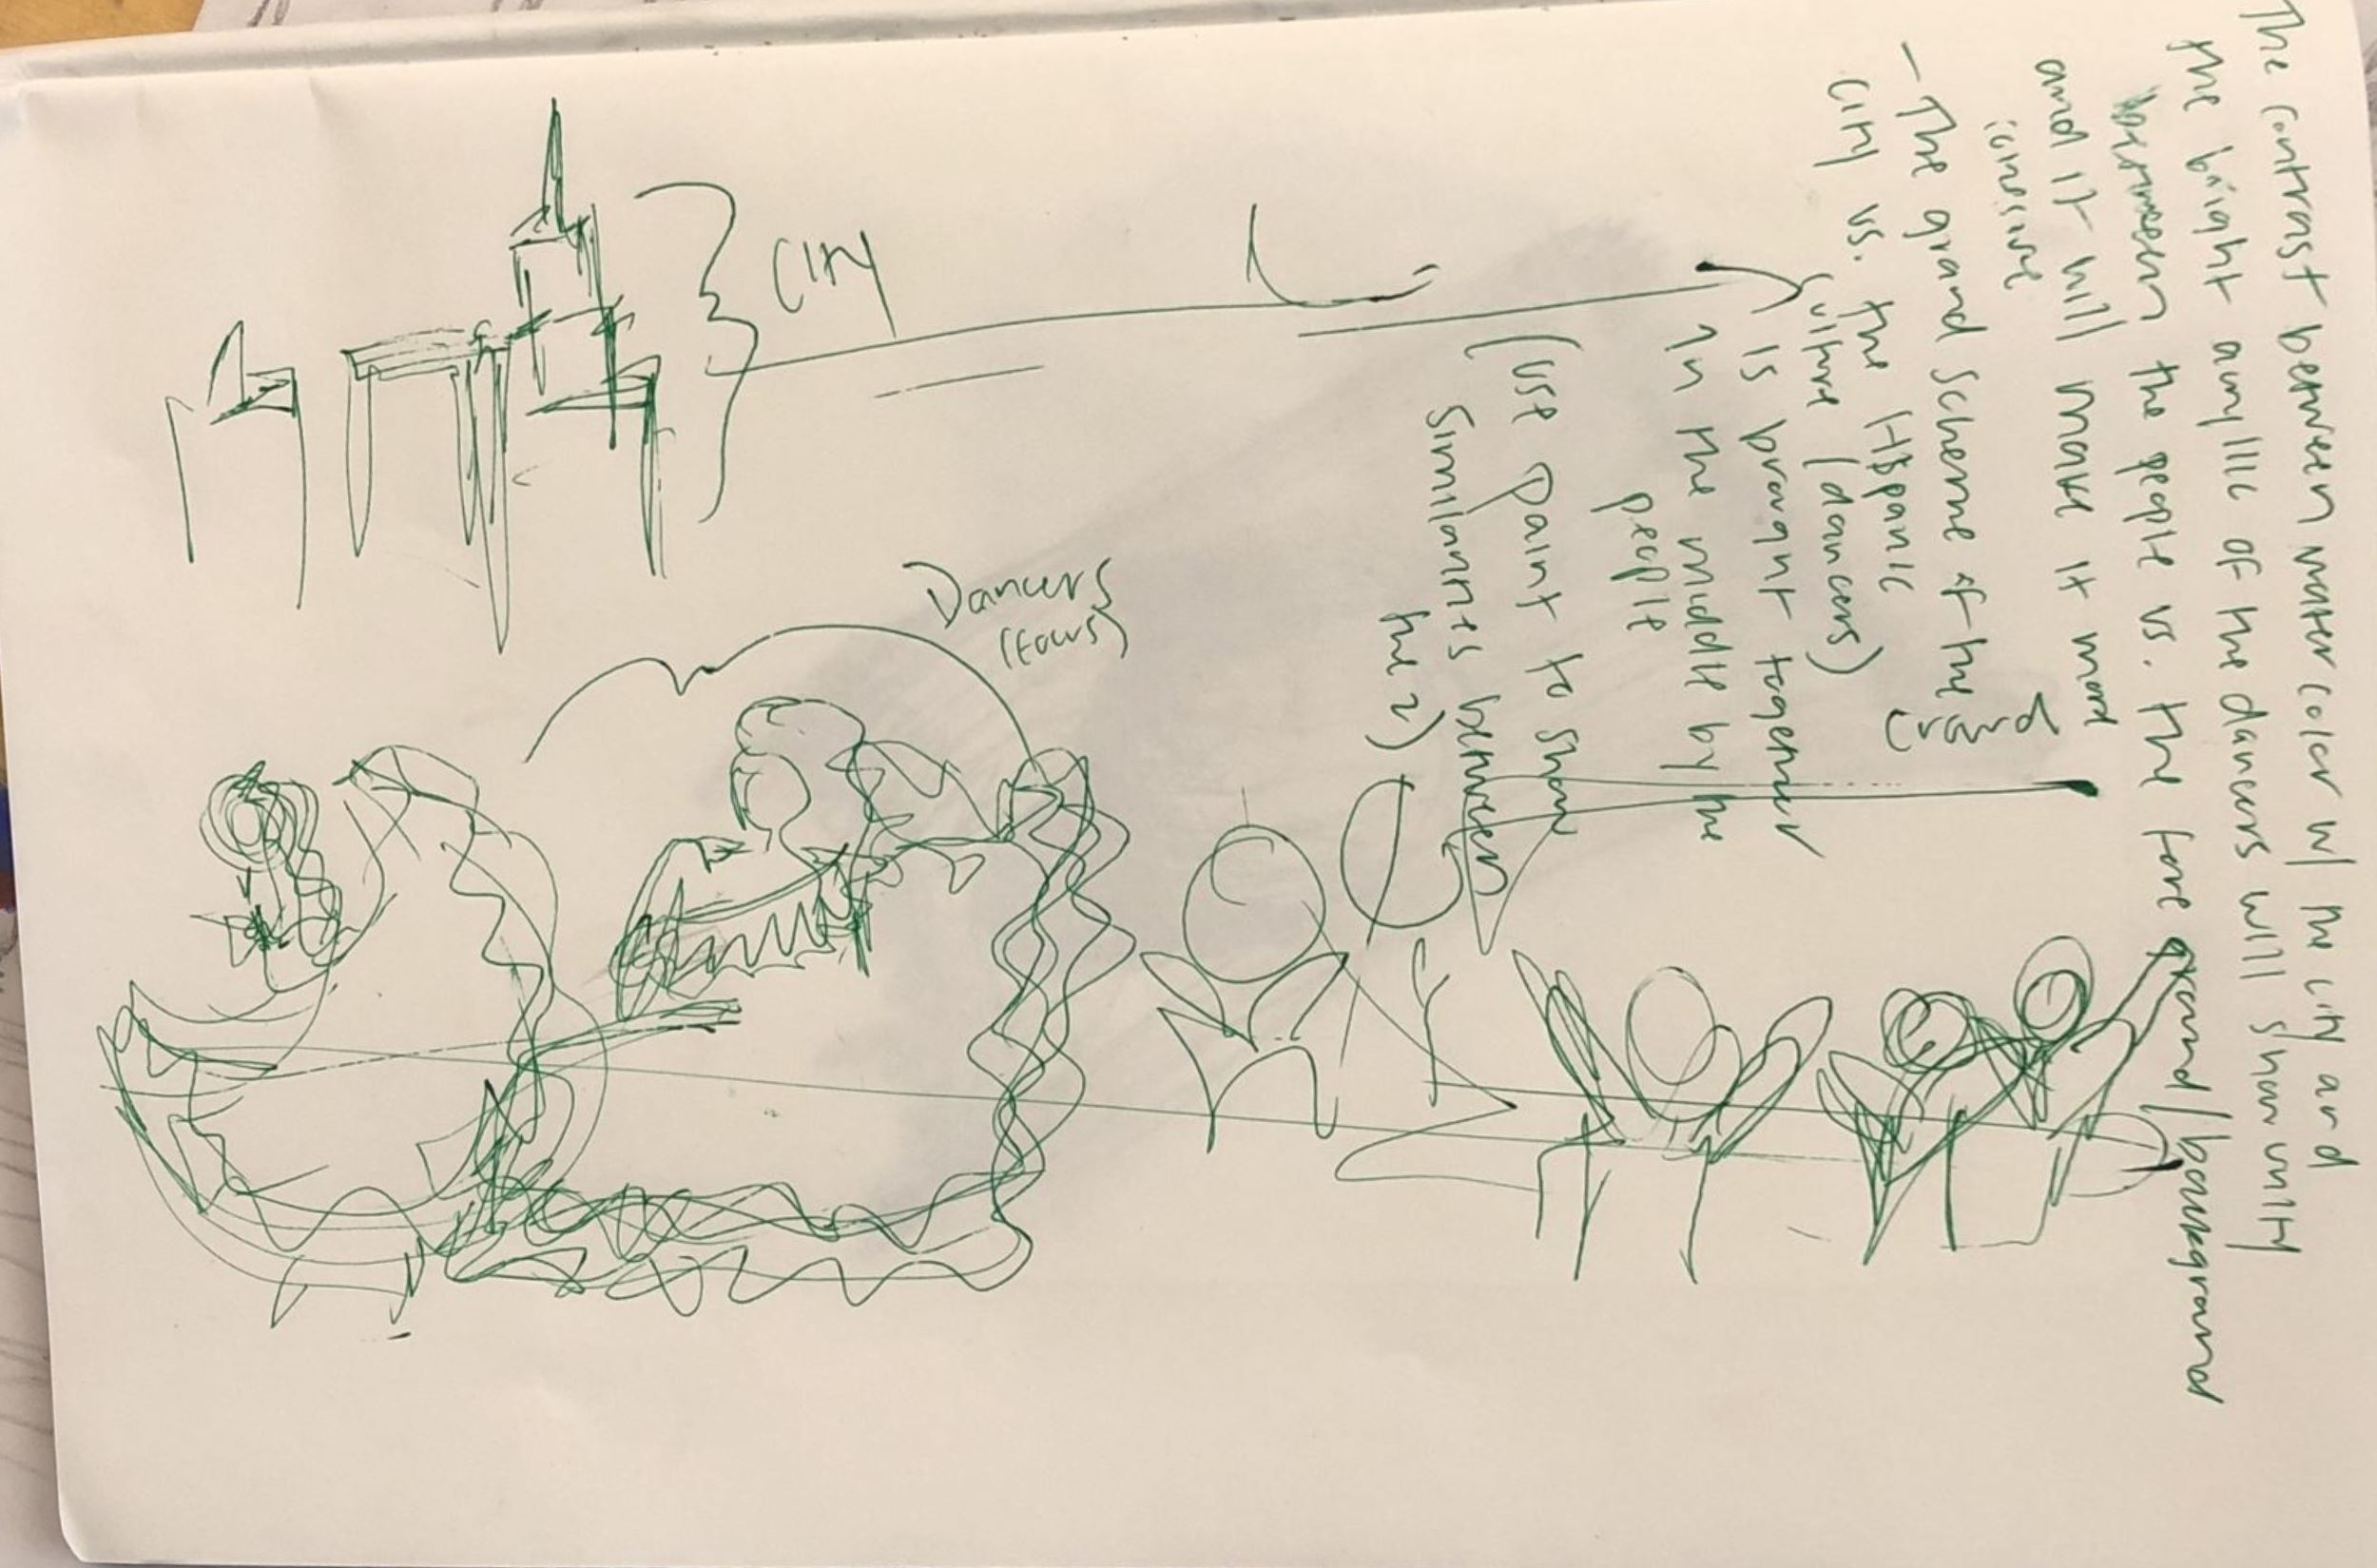 The contrast between water color w/ the city and
the bright acryllic of the dancers will show unity
between the people vs. the fore ground/background
and it will make it more
cohesive
- The grand scheme of the
city vs. the Hispanic
culture (dancers)
is brought together
in the middle by the
people
(use paint to show
similarities between
the 2)
crowd
City
Dancers
(focus)